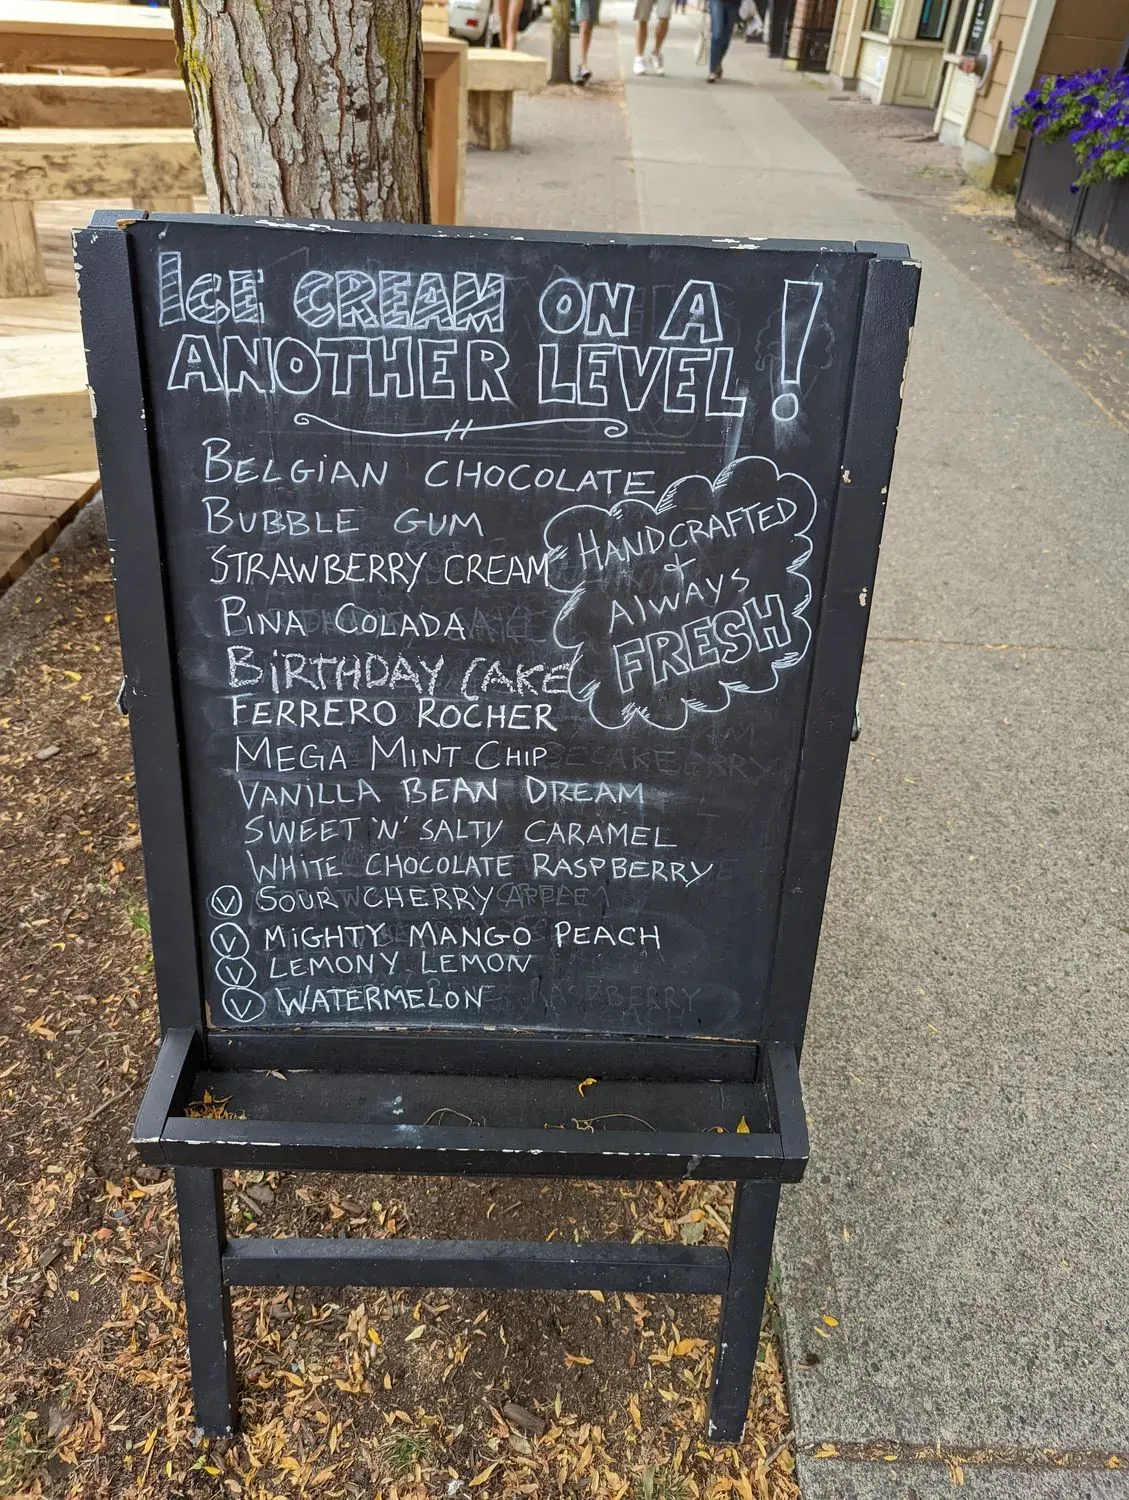 ICE CREAM ON A
ANOTHER LEVEL!
BELGIAN CHOCOLATE
BUBBLE GUM
STRAWBERRY CREAM
PINA COLADA
BIRTHDAY CAKE
FERRERO ROCHER
MEGA MINT CHIP
VANILLA BEAN DREAM
SWEET 'N' SALTY CARAMEL
WHITE CHOCOLATE RASPBERRY
V SOUR CHERRY
V MIGHTY MANGO PEACH
V LEMONY LEMON
V WATERMELON
HANDCRAFTED
+
ALWAYS
FRESH